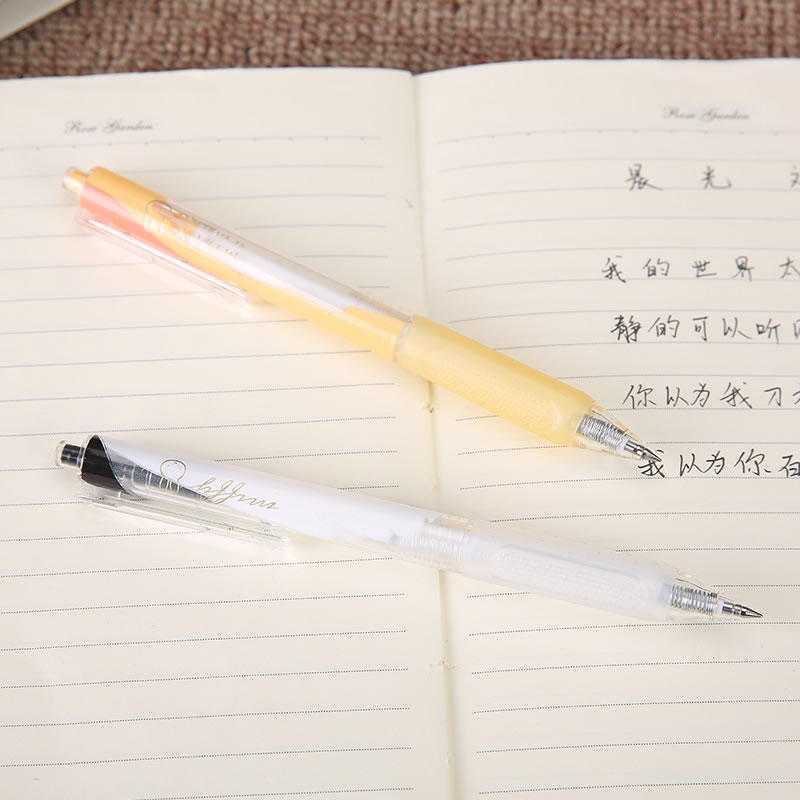 Rose Garden
Rose Garden
晨光
我的世界太
静的可以听
你以为我刀
我以为你在